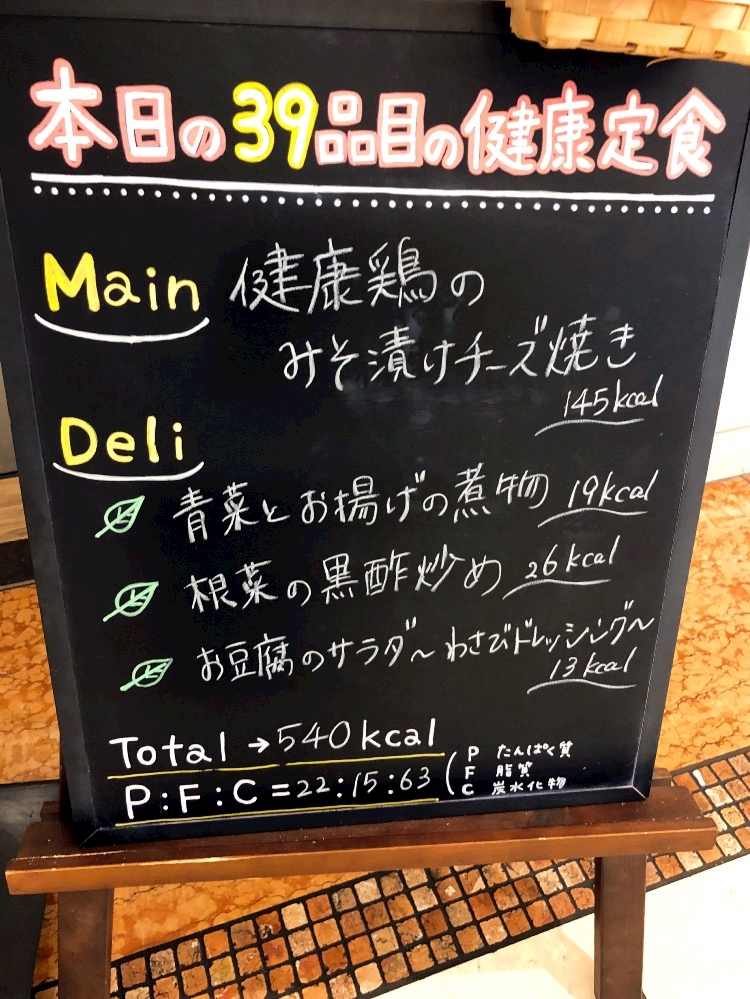 本日の39品目の健康定食
Main 健康鶏の
みそ漬けチーズ焼き
145kcal
Deli
青菜とお揚げの煮物 19kcal
根菜の黒酢炒め 26kcal
お豆腐のサラダ〜わさびドレッシング〜
13kcal
Total→540kcal
P:F:C=22:15:63
P たんぱく質
F 脂質
C 炭水化物